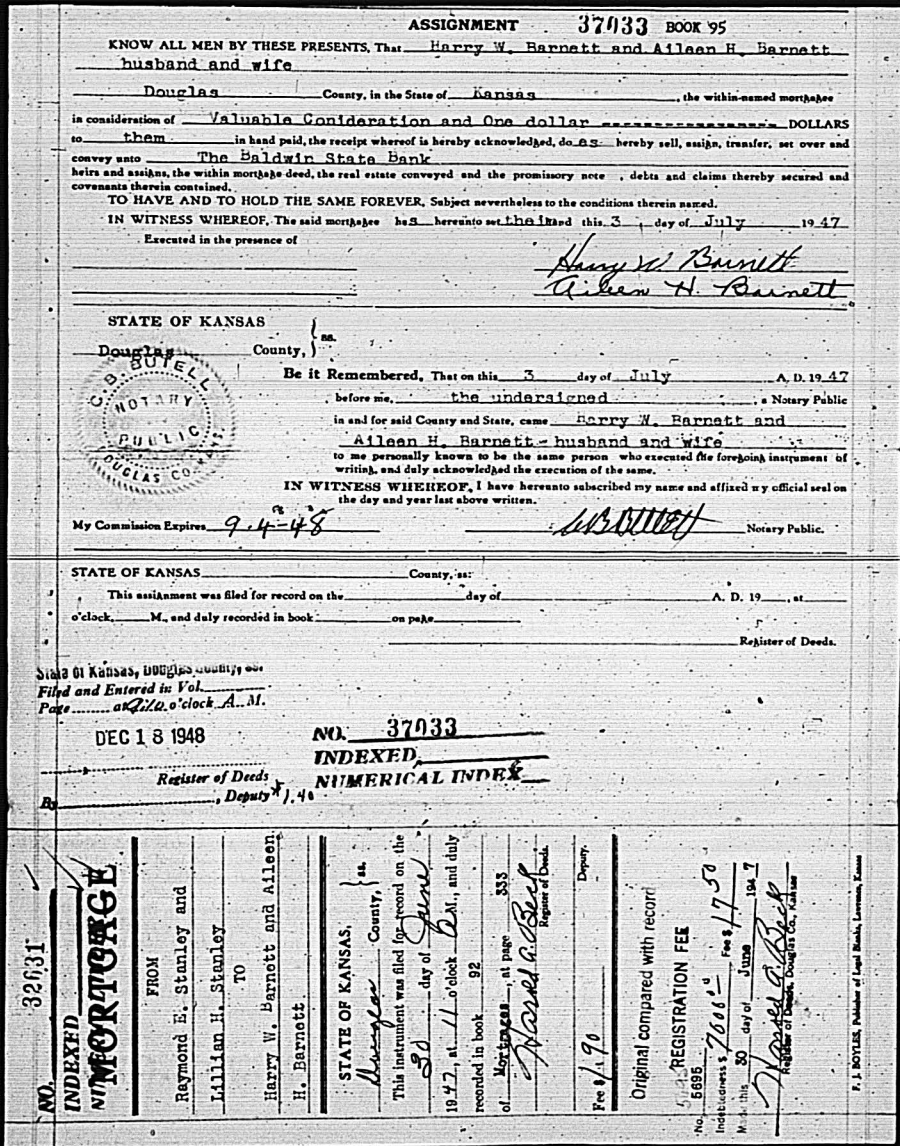 ASSIGNMENT 37033 BOOK '95
KNOW ALL MEN BY THESE PRESENTS, That Harry W. Barnett and Aileen H. Barnett
husband and wife
Douglas County, in the State of Kansas, the within-named mortgagee
in consideration of Valuable Conideration and One dollar ------------------- DOLLARS
to them in hand paid, the receipt whereof is hereby acknowledged, do es hereby sell, assign, transfer, set over and
convey unto The Baldwin State Bank
heirs and assigns, the within mortgage deed, the real estate conveyed and the promissory note , debts and claims thereby secured and
covenants therein contained.
TO HAVE AND TO HOLD THE SAME FOREVER, Subject nevertheless to the conditions therein named.
IN WITNESS WHEREOF, The said mortgagee has hereunto set their hand this 3 day of July 19 47
Executed in the presence of
Harry W. Barnett
Aileen H. Barnett
STATE OF KANSAS
Douglas County, } ss.
C. B. BUTELL
NOTARY
PUBLIC
DOUGLAS CO. KAS.
Be it Remembered, That on this 3 day of July A. D. 19 47
before me, the undersigned, a Notary Public
in and for said County and State, came Harry W. Barnett and
Aileen H. Barnett - husband and wife
to me personally known to be the same person who executed the foregoing instrument of
writing, and duly acknowledged the execution of the same.
IN WITNESS WHEREOF, I have hereunto subscribed my name and affixed my official seal on
the day and year last above written.
My Commission Expires 9-4-48 C B Butell Notary Public.
STATE OF KANSAS County, ss:
This assignment was filed for record on the day of A. D. 19 , at
o'clock M., and duly recorded in book on page
Register of Deeds.
State of Kansas, Douglas County, ss.
Filed and Entered in Vol.
Page at o'clock A. M.
DEC 18 1948
Register of Deeds
By , Deputy $1.40
NO. 37033
INDEXED
NUMERICAL INDEX
NO. 32631
INDEXED
MORTGAGE
FROM
Raymond E. Stanley and
Lillian H. Stanley
TO
Harry W. Barnett and Aileen
H. Barnett
STATE OF KANSAS,
Douglas County, } ss.
This instrument was filed for record on the
30 day of June
1947, at 11 o'clock A M., and duly
recorded in book 92
of Mortgages, at page 333
Harold A. Beck
Register of Deeds.
Deputy.
Fee $ 1.90
Original compared with record
REGISTRATION FEE
No. 5695 Fee $ 17.50
Indebtedness $ 7000.00
Made this 30 day of June 1947
Harold A. Beck
Register of Deeds, Douglas Co., Kansas
F. J. BOYLES, Publisher of Legal Blanks, Lawrence, Kansas